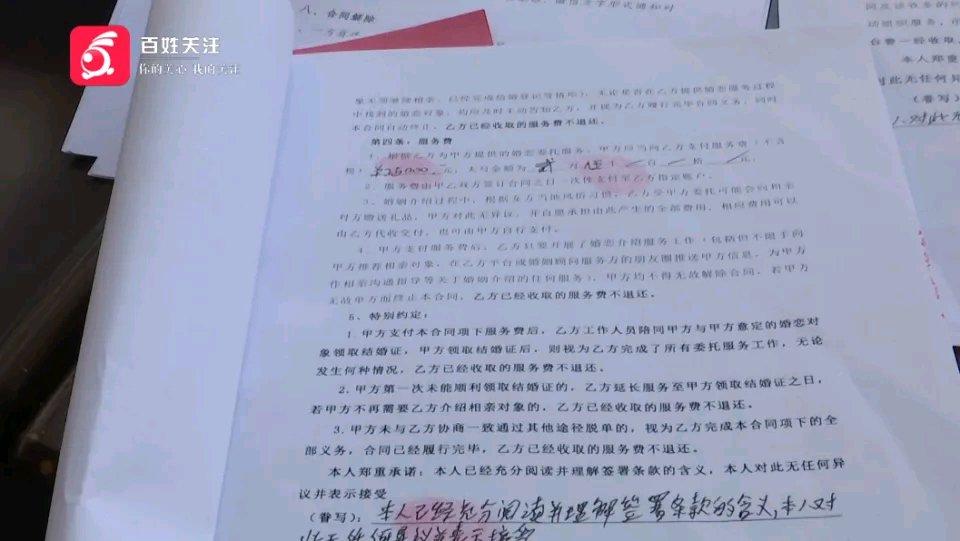 八、合同解除
百姓关注
你的关心 我的关注
本人郑重
对此无任何异
(誊写)
中找到的婚恋对象，均应及时主动告知乙方，并视为乙方履行完毕合同义务，同时
本合同自动终止，乙方已经收取的服务费不退还。
第四条：服务费
1、根据乙方为甲方提供的婚恋委托服务，甲方应当向乙方支付服务费（不含
税）¥25000 元，大写金额为 贰 万 伍 千 / 百 / 拾 / 元。
2、服务费由甲乙双方签订合同之日一次性支付至乙方指定账户。
3、婚姻介绍过程中，根据女方当地风俗习惯，乙方受甲方委托可能会向相亲
对方赠送礼品，甲方对此无异议，并自愿承担由此产生的全部费用，相应费用可以
由乙方代收交付，也可由甲方自行支付。
4、甲方支付服务费后，乙方只要开展了婚恋介绍服务工作（包括但不限于向
甲方推荐相亲对象，在乙方平台或婚姻顾问服务方的朋友圈推送甲方信息，为甲方
作相亲沟通指导等关于婚姻介绍的任何服务），甲方均不得无故解除合同，若甲方
无故单方面终止本合同，乙方已经收取的服务费不退还。
5、特别约定：
1.甲方支付本合同项下服务费后，乙方工作人员陪同甲方与甲方意定的婚恋对
象领取结婚证，甲方领取结婚证后，则视为乙方完成了所有委托服务工作，无论
发生何种情况，乙方已经收取的服务费不退还。
2.甲方第一次未能顺利领取结婚证的，乙方延长服务至甲方领取结婚证之日，
若甲方不再需要乙方介绍相亲对象的，乙方已经收取的服务费不退还。
3.甲方未与乙方协商一致通过其他途径脱单的，视为乙方完成本合同项下的全
部义务，合同已经履行完毕，乙方已经收取的服务费不退还。
本人郑重承诺：本人已经充分阅读并理解签署条款的含义，本人对此无任何异
议并表示接受
(誊写)：本人已经充分阅读并理解签署条款的含义，本人对